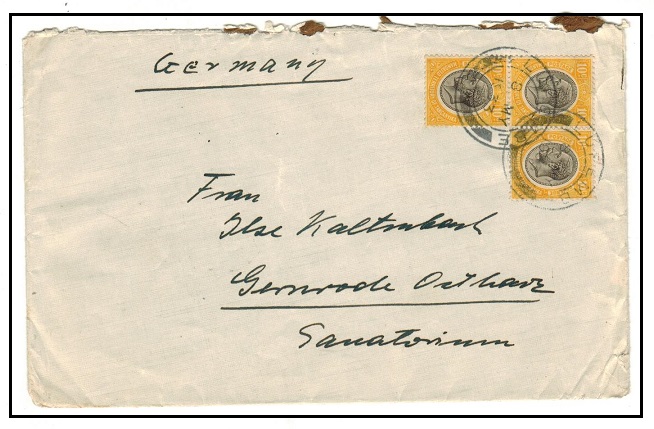 Germany
10
10
Frau
Ilse Kaltenbach
Gernrode Ostharz
Sanatorium